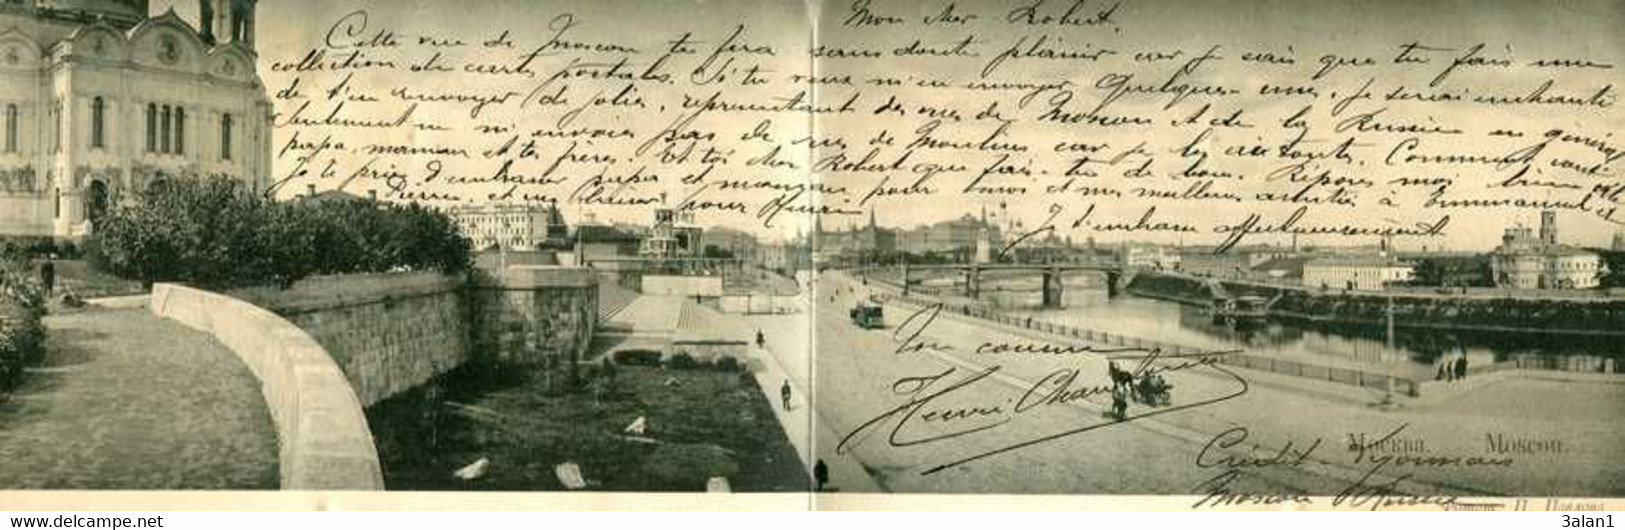 Mon cher Robert.
Cette vue de Moscou te fera sans doute plaisir car je sais que tu fais une
collection de cartes postales. Si tu veux m'en envoyer quelques-unes, je serai enchanté
de t'en renvoyer de jolies, représentant des vues de Moscou et de la Russie en général
Seulement ne m'envoie pas de vues de Moulins car je les ai toutes. Comment vont
papa, maman et tes frères. Et toi cher Robert que fais-tu de bon. Réponds moi bien vite
Je te prie d'embrasser papa et maman pour nous et mes meilleures amitiés à Emmanuel et
Pierre et un pour Henri
Je t'embrasse affectueusement
Ton cousin
Henri
Москва. Moscou.
Crédit Lyonnais
Moscou Russie
П. Павлова
3alan1